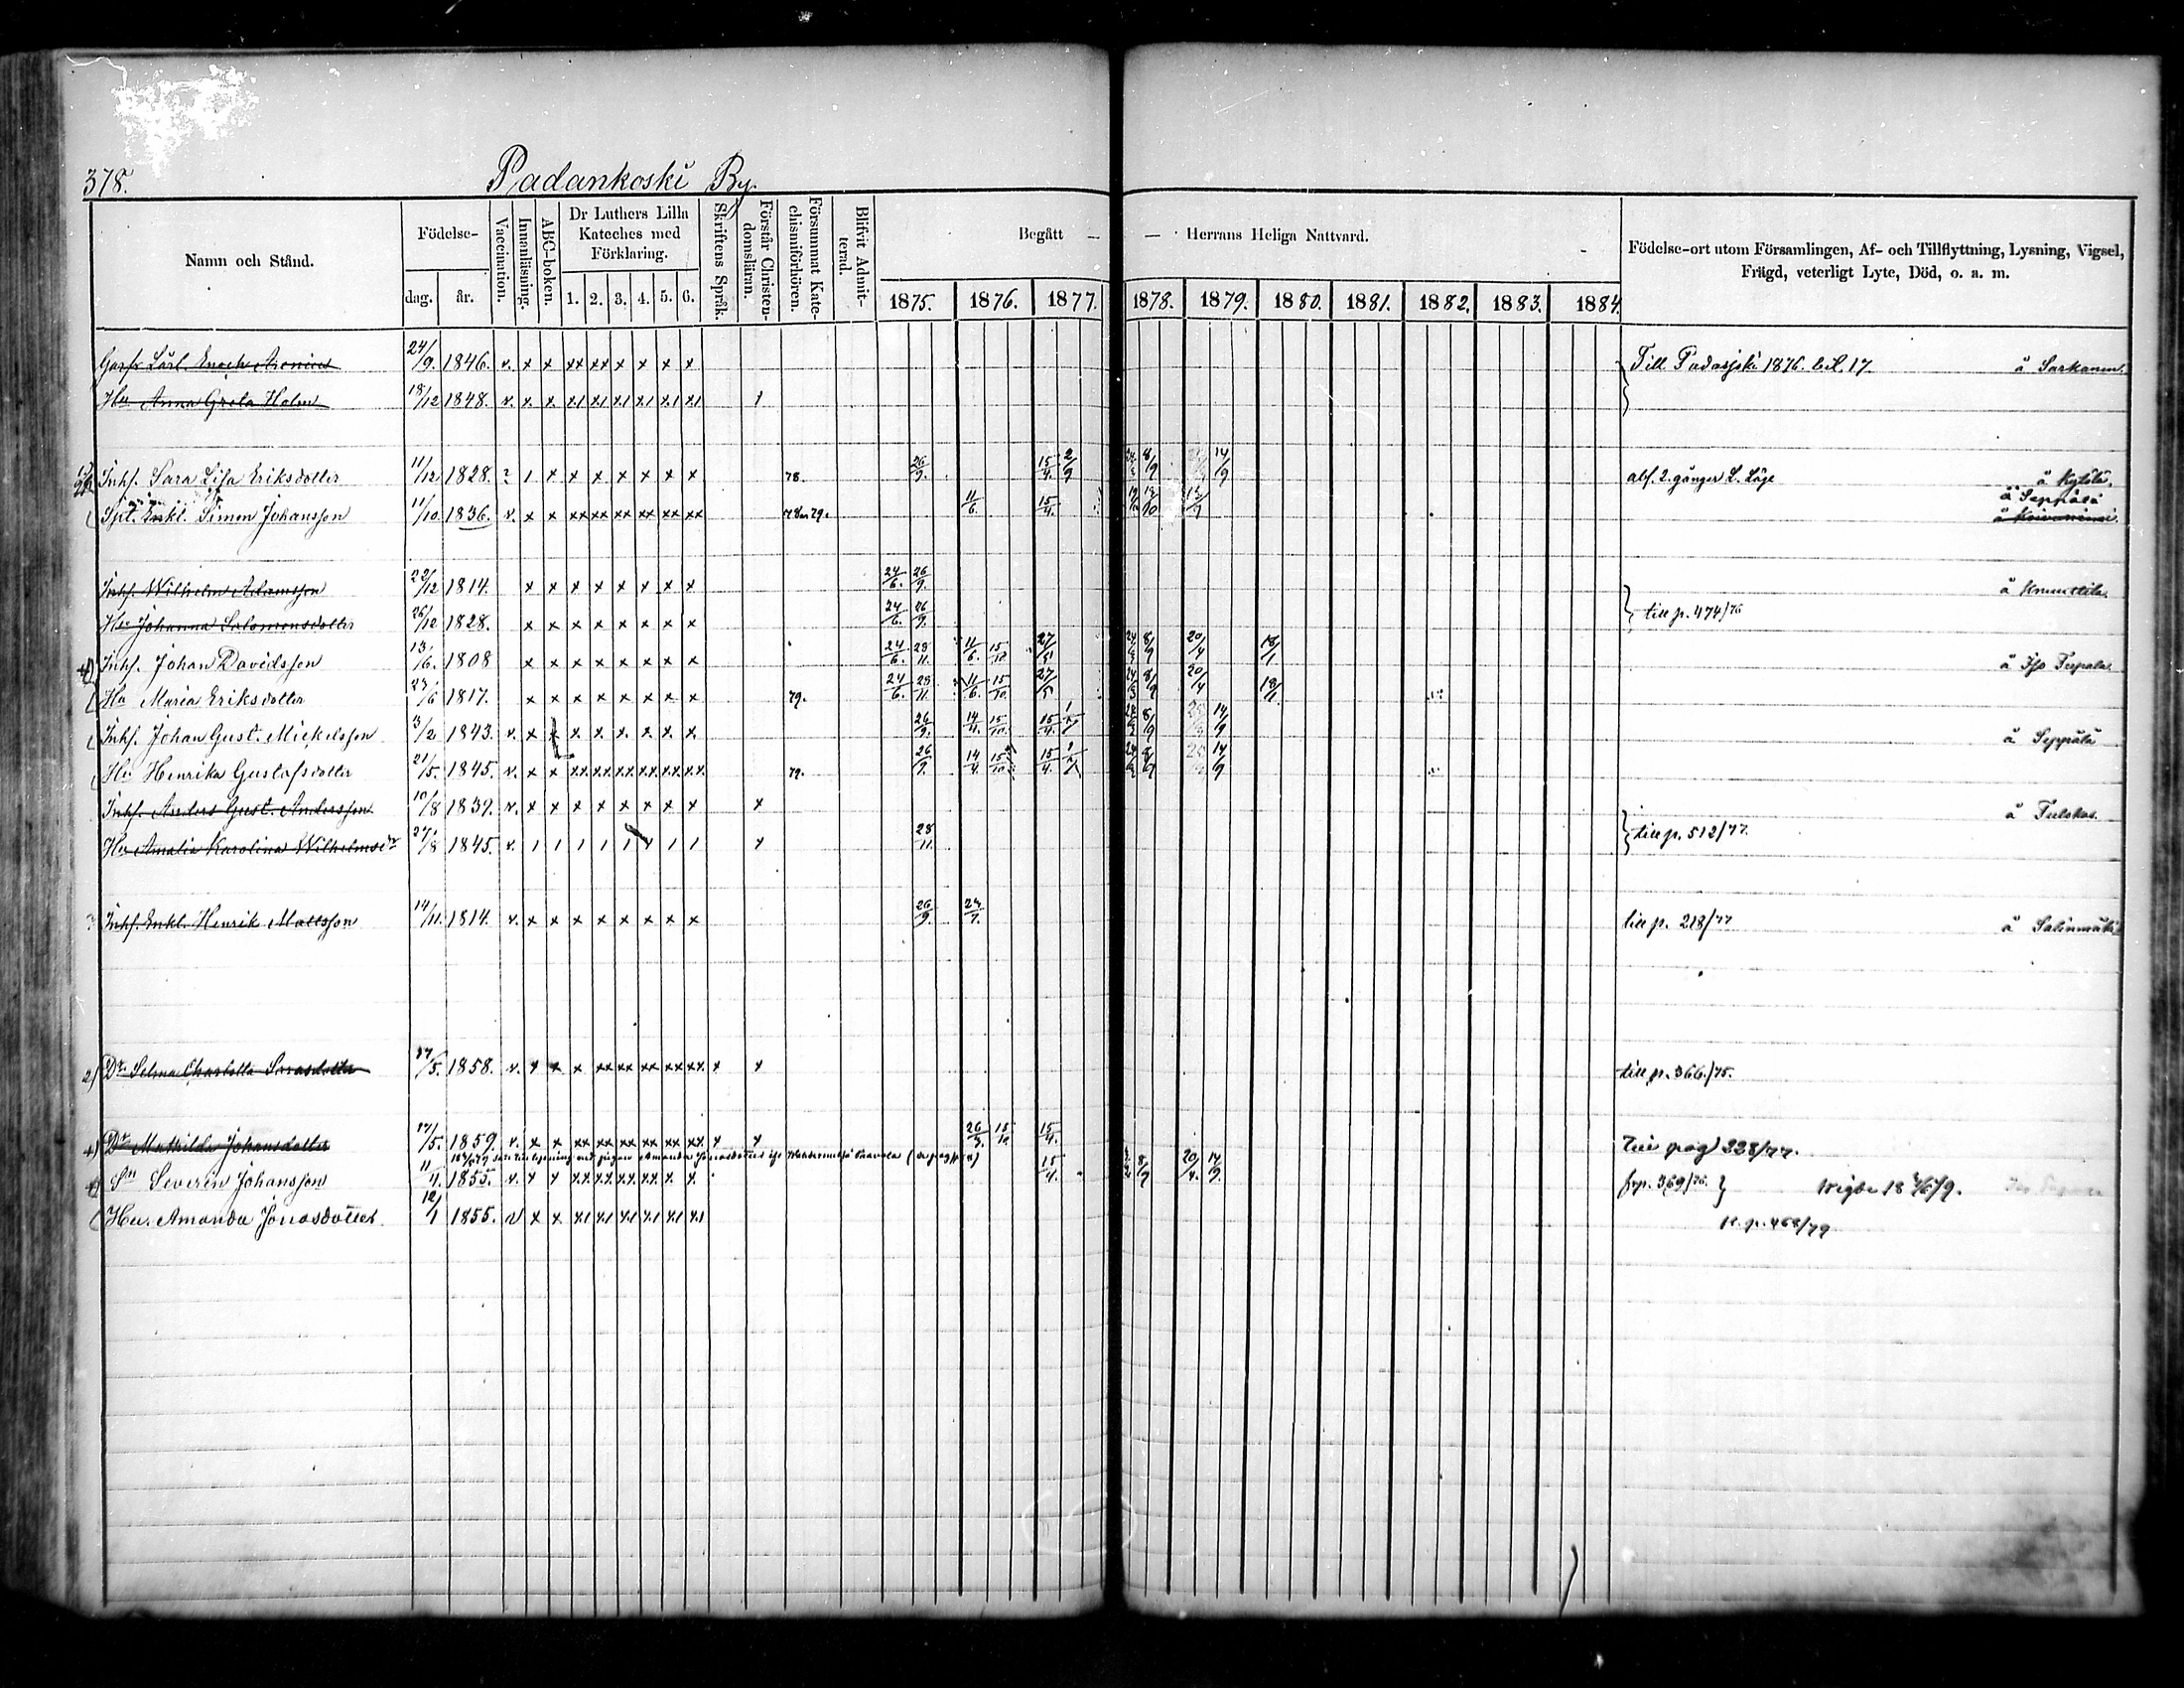 378.
Padankoski By.
Namn och Stånd.
Födelse-
dag. år.
Vaccination.
Innanläsning.
ABC-boken.
Dr Luthers Lilla
Kateches med
Förklaring.
1. 2. 3. 4. 5. 6.
Skriftens Språk.
Förstår Christen-
domsläran.
Försummat Kate-
chismiförhören.
Blifvit Admit-
terad.
Begått — — Herrans Heliga Nattvard.
1875. 1876. 1877. 1878. 1879. 1880. 1881. 1882. 1883. 1884.
Födelse-ort utom Församlingen, Af- och Tillflyttning, Lysning, Vigsel,
Frägd, veterligt Lyte, Död, o. a. m.
24/9. 1846. v. x x xx xx x x x x Till Padasjoki 1876. bil. 17.
Hu Anna Greta Holm 18/12 1848. v. x x x1 x1 x1 x1 x1 x1 1
Inhs. Sara Lisa Eriksdotter 11/12 1828. ? 1 x x x x x x x 78. 26/9. 15/4. 2/9 8/9 14/9 abs. 2. gånger L. Läge å Kylölä.
Enkl. Simon Johansson 11/10. 1836. v. x x xx xx xx xx xx xx 11/6. 15/4. å Seppälä
Inhs. Wilhelm Adamsson 22/12 1814. x x x x x x x x 24/6. 26/9. å Knuuttila.
Hu Johanna Salomonsdotter 26/12 1828. x x x x x x x x 24/6. 26/9. till p. 474/76
Inhs. Johan Davidsson 13/6. 1808 x x x x x x x x 24/6. 28/11. 11/6. 15/10 27/5 8/9 20/4 18/1.
Hu Maria Eriksdotter 23/6 1817. x x x x x x x x 79. 24/6. 28/11. 11/6. 15/10. 27/5 8/9 20/4 18/1.
Inhs. Johan Gust. Mickelsson 3/2 1843. v. x x x x x x x x 26/9. 14/4. 15/10. 15/4. 8/9 14/9 å Seppälä
Hu Henrika Gustafsdotter 21/5. 1845. v. x x xx xx xx xx xx xx 79. 26/9. 14/4. 15/10 15/4. 8/9 14/9
Inhs. Anders Gust. Andersson 10/8 1839. v. x x x x x x x x x
Hu Amalia Karolina Wilhelmsdr 27/8 1845. v. 1 1 1 1 1 1 1 1 28/11. till p. 512/77.
Inhs. Enkl. Henrik Mattsson 14/11. 1814. v. x x x x x x x 26/9. till p. 218/77
2) Dr. Selma Charlotta 1858. v. x x x xx xx xx xx xx x x till p. 366./75.
Dr Mathilda Johansdotter 17/5. 1859. v. x x xx xx xx xx xx xx x x 15/10 15/4.
Amanda Jonasdotter
Sn Severin Johansson 11/4. 1855. v. x x xx xx xx xx x x 15/4. 8/9 20/4. 14/9. frp. 369/76.
Hu. Amanda Jonasdotter 12/1 1855. v x x x1 x1 x1 x1 x1 x1